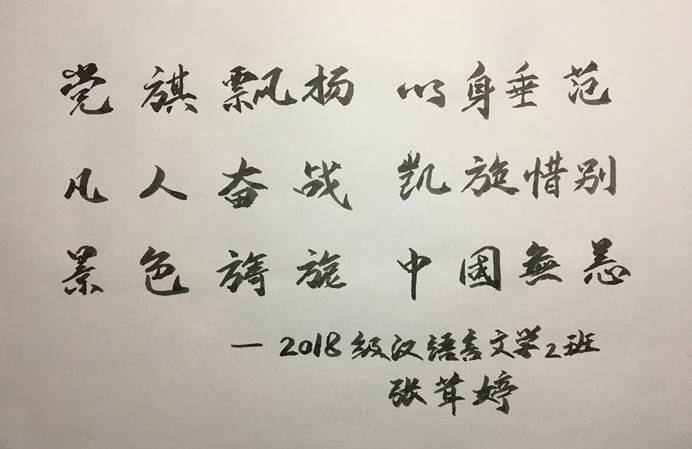 党旗飘扬 以身垂范
凡人奋战 凯旋惜别
景色旖旎 中國無恙
— 2018级汉语言文学2班
张茸婷